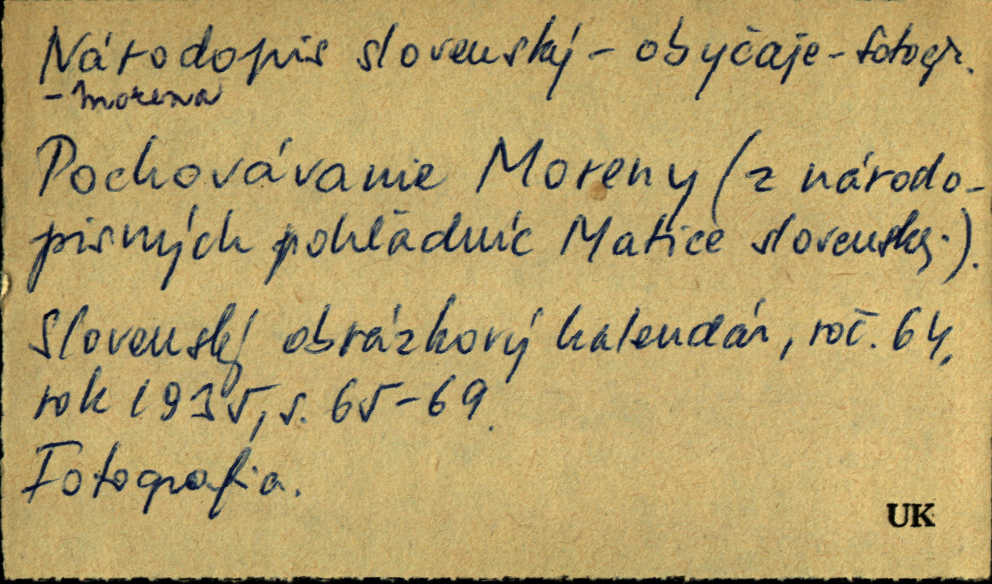 Národopis slovenský - obyčaje - fotogr.
- morena
Pochovávanie Moreny (z národo-
pisných pohľadníc Matice slovensk.).
Slovenský obrázkový kalendár, roč. 64,
rok 1935, s. 65-69.
Fotografia.
UK